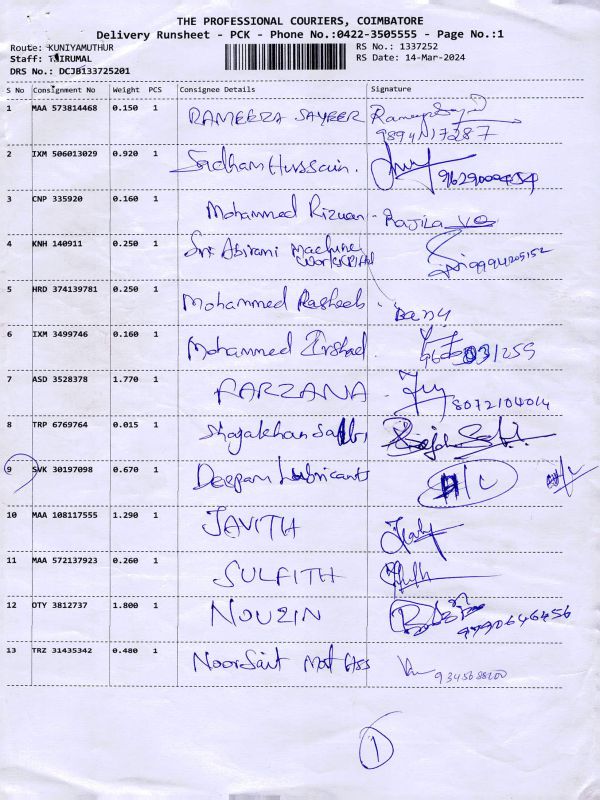 THE PROFESSIONAL COURIERS, COIMBATORE
Delivery Runsheet - PCK - Phone No.:0422-3505555 - Page No.:1
Route: KUNIYAMUTHUR RS No.: 1337252
Staff: TJIRUMAL RS Date: 14-Mar-2024
DRS No.: DCJB133725201
S No Consignment No Weight PCS Consignee Details Signature
1 MAA 573814468 0.150 1 RAMEEZA SAYEER
2 IXM 506013029 0.920 1 Sadham Hussain.
3 CNP 335920 0.160 1 Mohammed Rizwan - Rajila
4 KNH 140911 0.250 1 Sri Abirami Machine
9994205152
5 HRD 374139781 0.250 1 Mohammed Rasheeb. Banu
6 IXM 3499746 0.160 1 Mohammed Irshad.
7 ASD 3528378 1.770 1 FARZANA
8072104014
8 TRP 6769764 0.015 1
9 SVK 30197098 0.670 1 Deepam Lubricants H/L H/L
10 MAA 108117555 1.290 1 JAVITH
11 MAA 572137923 0.260 1 SULFITH
12 OTY 3812737 1.800 1 NOUZIN
13 TRZ 31435342 0.480 1 NoorSait
9345688200
1